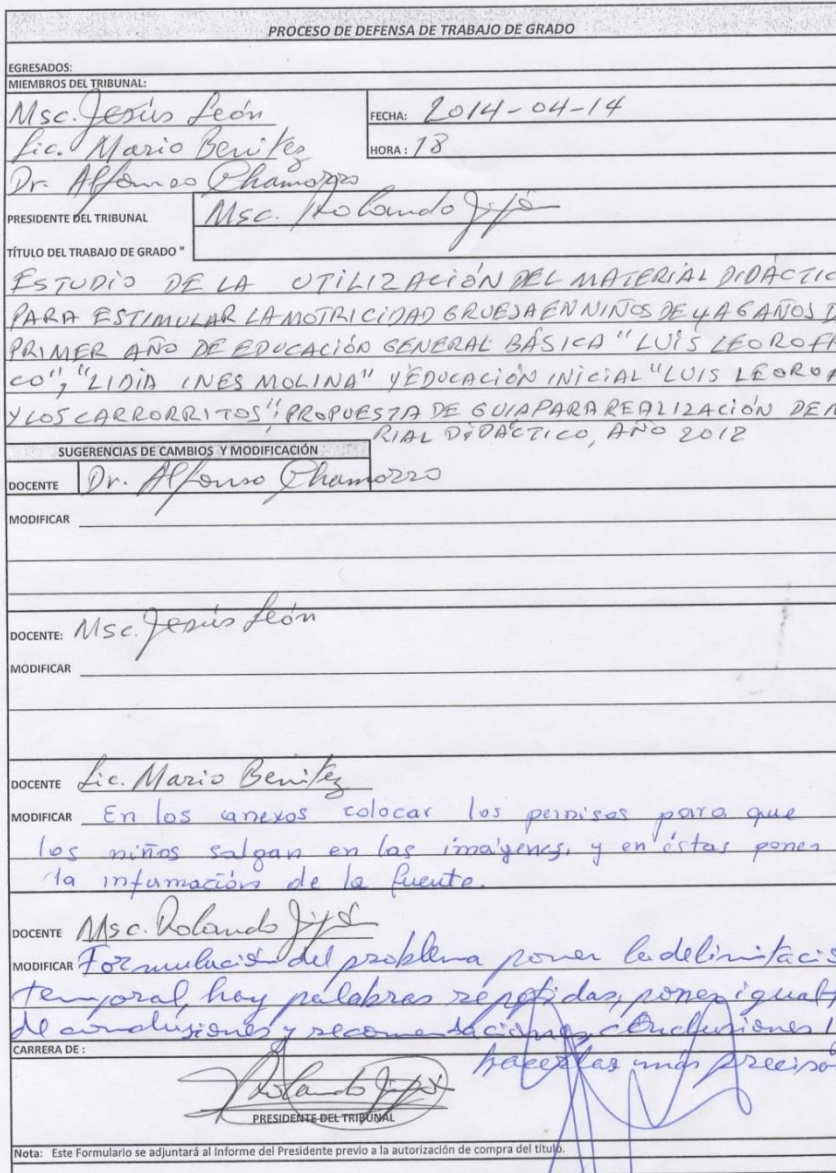 PROCESO DE DEFENSA DE TRABAJO DE GRADO
EGRESADOS:
MIEMBROS DEL TRIBUNAL:
Msc. Jesús León
FECHA: 2014-04-14
Lic. Mario Benítez
HORA: 18
Dr. Alfonso Chamorro
PRESIDENTE DEL TRIBUNAL Msc. Rolando Jijón
TÍTULO DEL TRABAJO DE GRADO "
ESTUDIO DE LA UTILIZACIÓN DEL MATERIAL DIDÁCTIC
PARA ESTIMULAR LA MOTRICIDAD GRUESA EN NIÑOS DE 4 A 6 AÑOS D
PRIMER AÑO DE EDUCACIÓN GENERAL BÁSICA "LUIS LEORO FR
CO", "LIDIA INES MOLINA" Y EDUCACIÓN INICIAL "LUIS LEORO
Y LOS CARRORRITOS"; PROPUESTA DE GUIA PARA REALIZACIÓN DE
RIAL DIDÁCTICO, AÑO 2012
SUGERENCIAS DE CAMBIOS Y MODIFICACIÓN
DOCENTE Dr. Alfonso Chamorro
MODIFICAR
DOCENTE: Msc. Jesús León
MODIFICAR
DOCENTE Lic. Mario Benítez
MODIFICAR En los anexos colocar los permisos para que
los niños salgan en las imágenes, y en éstas poner
la información de la fuente.
DOCENTE Msc. Rolando Jijón
MODIFICAR Formulación del problema poner la delimitació
temporal, hay palabras repetidas, poner igual
de conclusiones y recomendaciones, conclusiones
CARRERA DE :
hacerlas más preciso
Rolando Jijón
PRESIDENTE DEL TRIBUNAL
Nota: Este Formulario se adjuntará al Informe del Presidente previo a la autorización de compra del título.